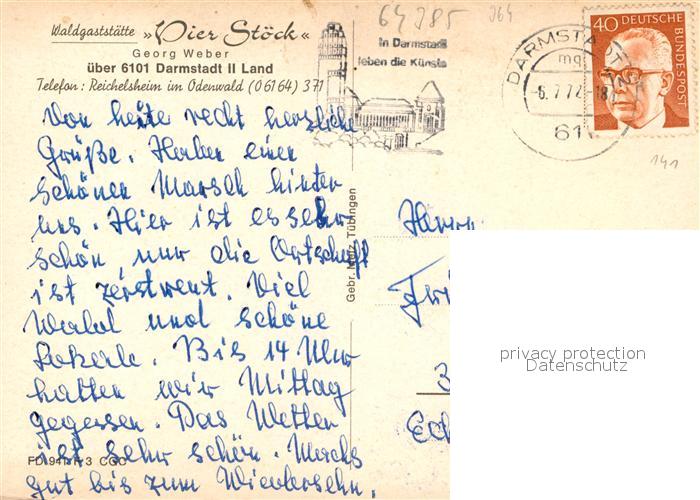 Waldgaststätte »Vier Stöck«
Georg Weber
über 6101 Darmstadt II Land
Telefon: Reichelsheim im Odenwald (06164) 371
64385
364
In Darmstadt
leben die Künste
DARMSTADT
mg
-6.7.72-18
611
40 DEUTSCHE
BUNDESPOST
141
Von heite recht herzliche
Grüße. Haben einen
schönen Marsch hinter
uns. Hier ist es sehr
schön, nur die Ortschaft
ist zerstreut. Viel
Wald und schöne
. Bis 14 Uhr
hatten wir Mittag
gegessen. Das Wetter
ist sehr schön. Machs
gut bis zum Wiedersehn.
Gebr. Metz, Tübingen
Herrn
3
FD 941 F 3 CGC
privacy protection
Datenschutz